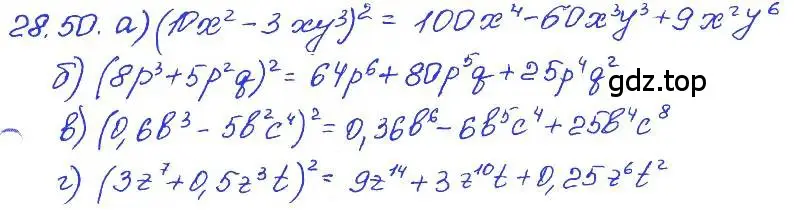 28.50. а) (10x² - 3xy³)² = 100x⁴ - 60x³y³ + 9x²y⁶
б) (8p³ + 5p²q)² = 64p⁶ + 80p⁵q + 25p⁴q²
gdz.top
в) (0,6b³ - 5b²c⁴)² = 0,36b⁶ - 6b⁵c⁴ + 25b⁴c⁸
г) (3z⁷ + 0,5z³t)² = 9z¹⁴ + 3z¹⁰t + 0,25z⁶t²